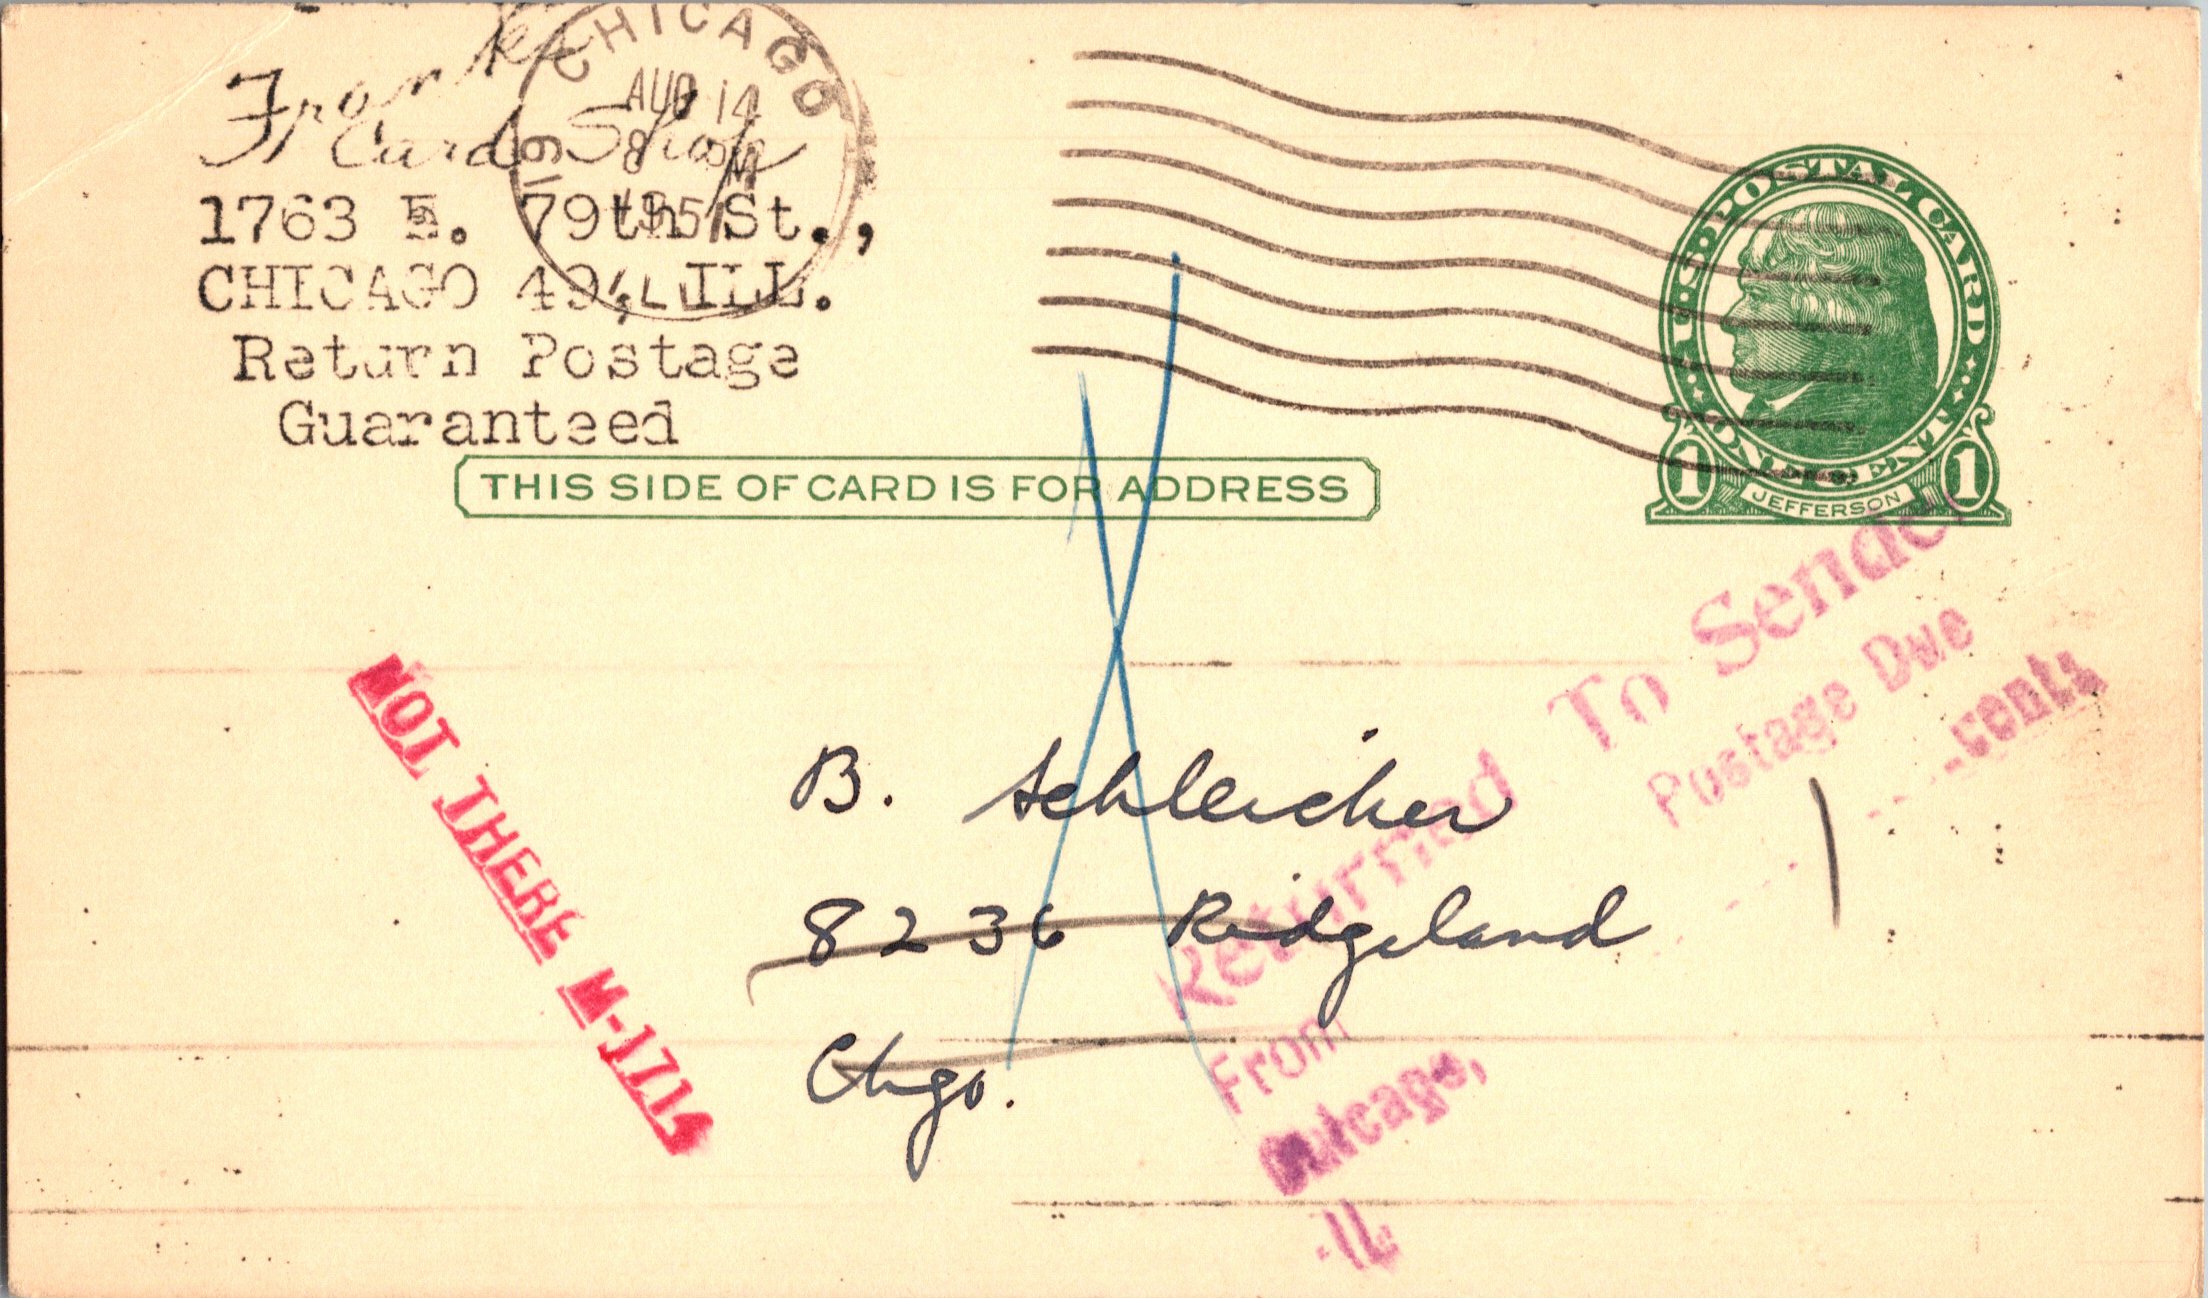 Frank's
Card Shop
1763 E. 79th St.,
CHICAGO 49, ILL.
Return Postage
Guaranteed
CHICAGO
AUG 14
8
1951
U·S·POSTAL CARD
ONE CENT
1 JEFFERSON 1
THIS SIDE OF CARD IS FOR ADDRESS
NOT THERE M-1714
B. Schleicher
8236 Ridgeland
Chgo.
Returned To Sender
Postage Due
cents
From
Chicago,